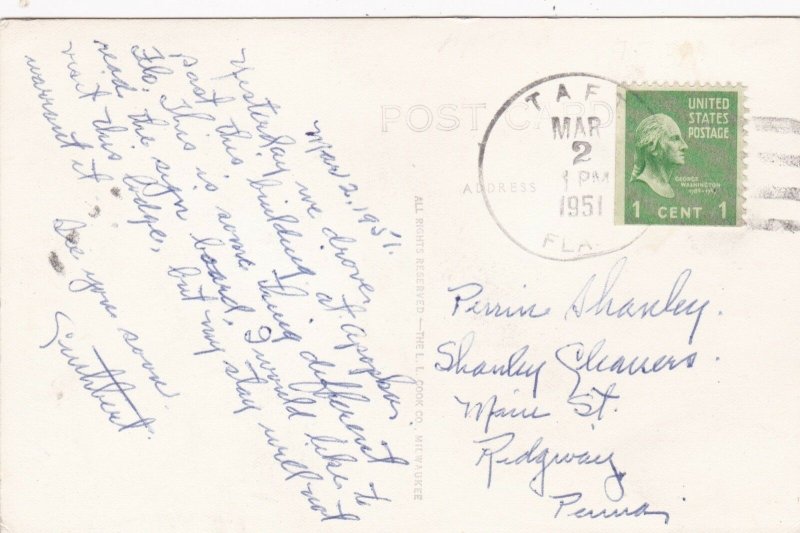 Mar 2, 1951.
Yesterday we drove
past this building at Apopka,
Fla. This is some thing different
read the sign board. I would like to
visit this lodge, but my stay will not
warrant it. See you soon.
Cuthbert.
POST CARD
ADDRESS
ALL RIGHTS RESERVED — THE L. L. COOK CO. MILWAUKEE
TAFT
MAR
2
1 PM
1951
FLA.
UNITED
STATES
POSTAGE
GEORGE
WASHINGTON
1 CENT 1
Perrin Shanley.
Shanley Cleaners.
Main St.
Ridgway,
Penna.